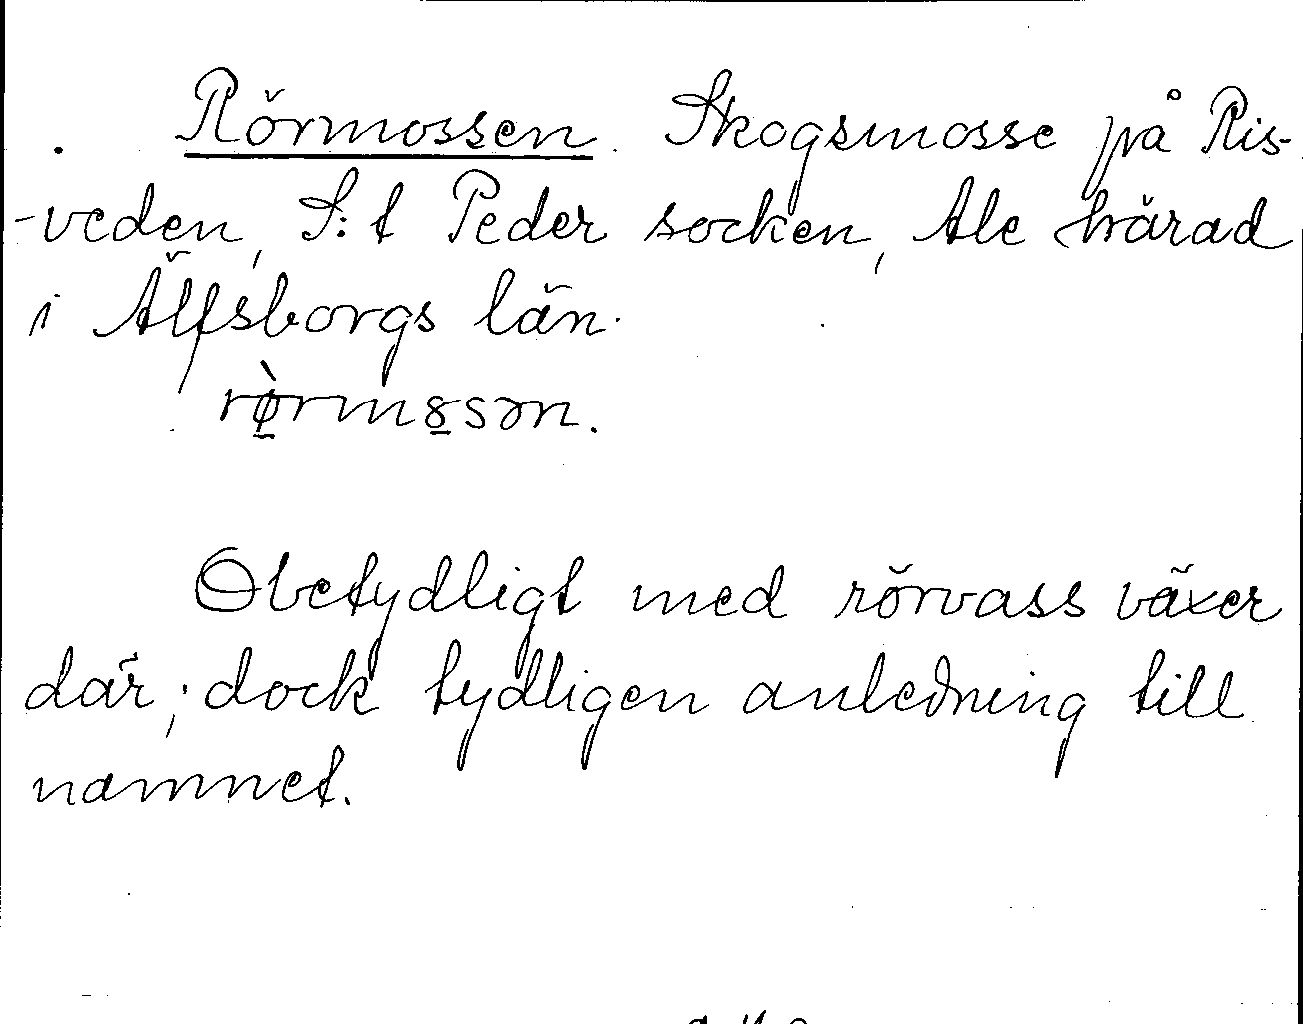 Rörmossen. Skogsmosse på Ris-
-veden, S:t Peder socken, Ale härad
i Älfsborgs län.
rø̀rmȣsən.
Obetydligt med rörvass växer
där; dock tydligen anledning till
namnet.